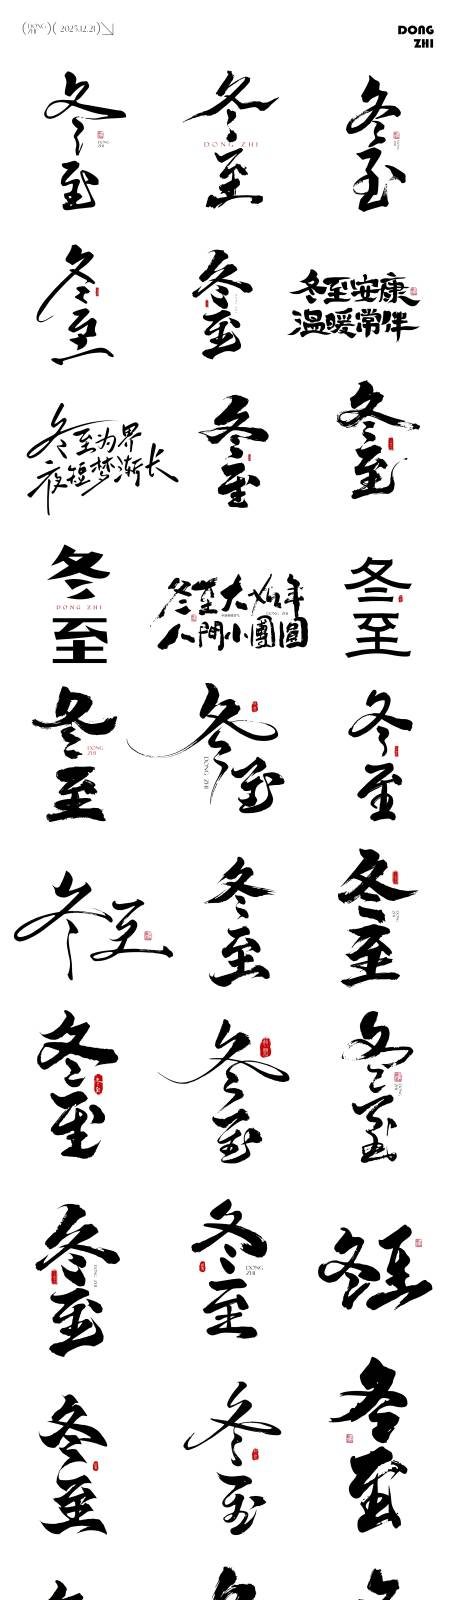 (DONG ZHI)(2025.12.21)
DONG
ZHI
冬至
DONG
ZHI
冬至
DONG ZHI
冬至
冬至
冬至
冬至安康
温暖常伴
冬至为界
夜短梦渐长
冬至
冬至
冬至
DONG ZHI
冬至大如年
人間小團圓
冬至
冬至
DONG
ZHI
冬至
DONG ZHI
冬至
冬至
冬至
冬至
冬至
冬至
冬至
冬至
DONG ZHI
冬至
DONG
ZHI
冬至
冬至
冬至
冬至